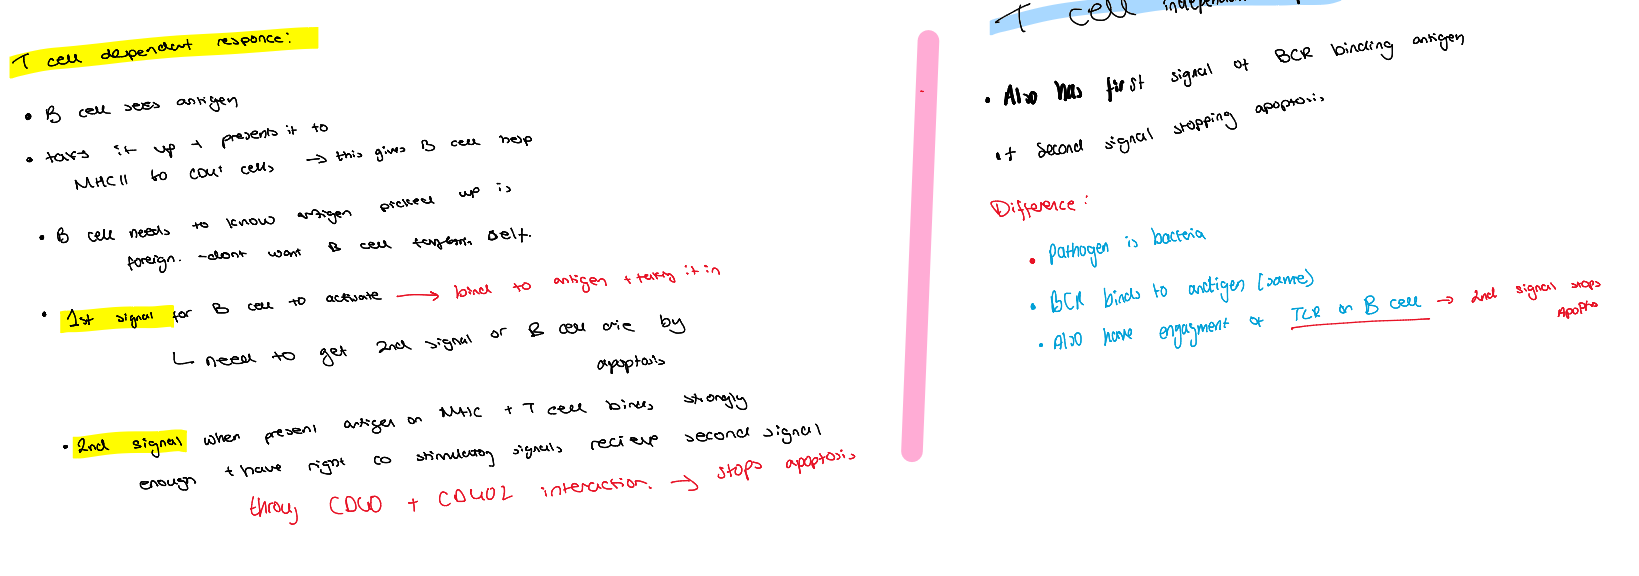 T cell dependent responce:
• B cell sees antigen
• takes it up + presents it to
MHCII to CD4+ cells → this gives B cell help
• B cell needs to know antigen picked up is
foreign. -dont want B cell targeting self.
• 1st signal for B cell to activate → bind to antigen + taking it in
↳ need to get 2nd signal or B cell die by
apoptosis
• 2nd signal when present antigen on MHC + T cell binds strongly
enough + have right co stimulatory signals, recieve second signal
throug CD40 + CD40L interaction. → stops apoptosis
T cell independent
• Also has first signal of BCR binding antigen
• + second signal stopping apoptosis
Difference:
• Pathogen is bacteria
• BCR binds to anctigen (same)
• Also have engagment of TLR on B cell → 2nd signal stops
Apopto